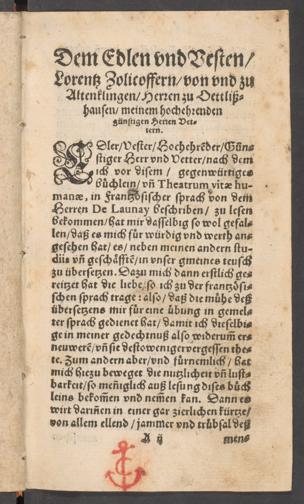 Dem Edlen vnd Vesten/
Lorentz Zolicoffern/ von vnd zu
Altenklingen/ Herren zu Oettliß-
hausen/ meinem hochehrenden
günstigen Herren Vet-
tern.
EDler/ Vester/ Hochehrēder/ Gün-
stiger Herr vnd Vetter/ nach dem
ich vor disem/ gegenwürtiges
büchlein/ vn̄ Theatrum vitæ hu-
manæ, in Frantzösischer sprach von dem
Herren De Launay beschriben/ zu lesen
bekommen/ hat mir dasselbig so wol gefal-
len/ daß es mich für würdig vnd werth an-
gesehen hat/ es/ neben meinen andern stu-
diis vn̄ geschäfftē/ in vnser gmeines teusch
zu übersetzen. Dazu mich dann erstlich ge-
reitzet hat die liebe/ so ich zu der frantzösi-
schen sprach trage: also/ daß die mühe deß
übersetzens mir für eine übung in gemel-
ter sprach gedienet hat/ damit ich dieselbi-
ge in meiner gedechtnuß also widerum̄ er-
neuwerē/ vn̄ sie desto weniger vergessen the-
te. Zum andern aber/ vnd fürnemlich/ hat
mich hiezu beweget die nutzlicheit vn̄ lust-
barkeit/ so meniglich auß lesung dises büch
leins bekom̄en vnd nemen kan. Dann es
wirt darin̄en in einer gar zierlichen kürtze/
von allem ellend/ jammer vnd trübsal deß
A ij mens